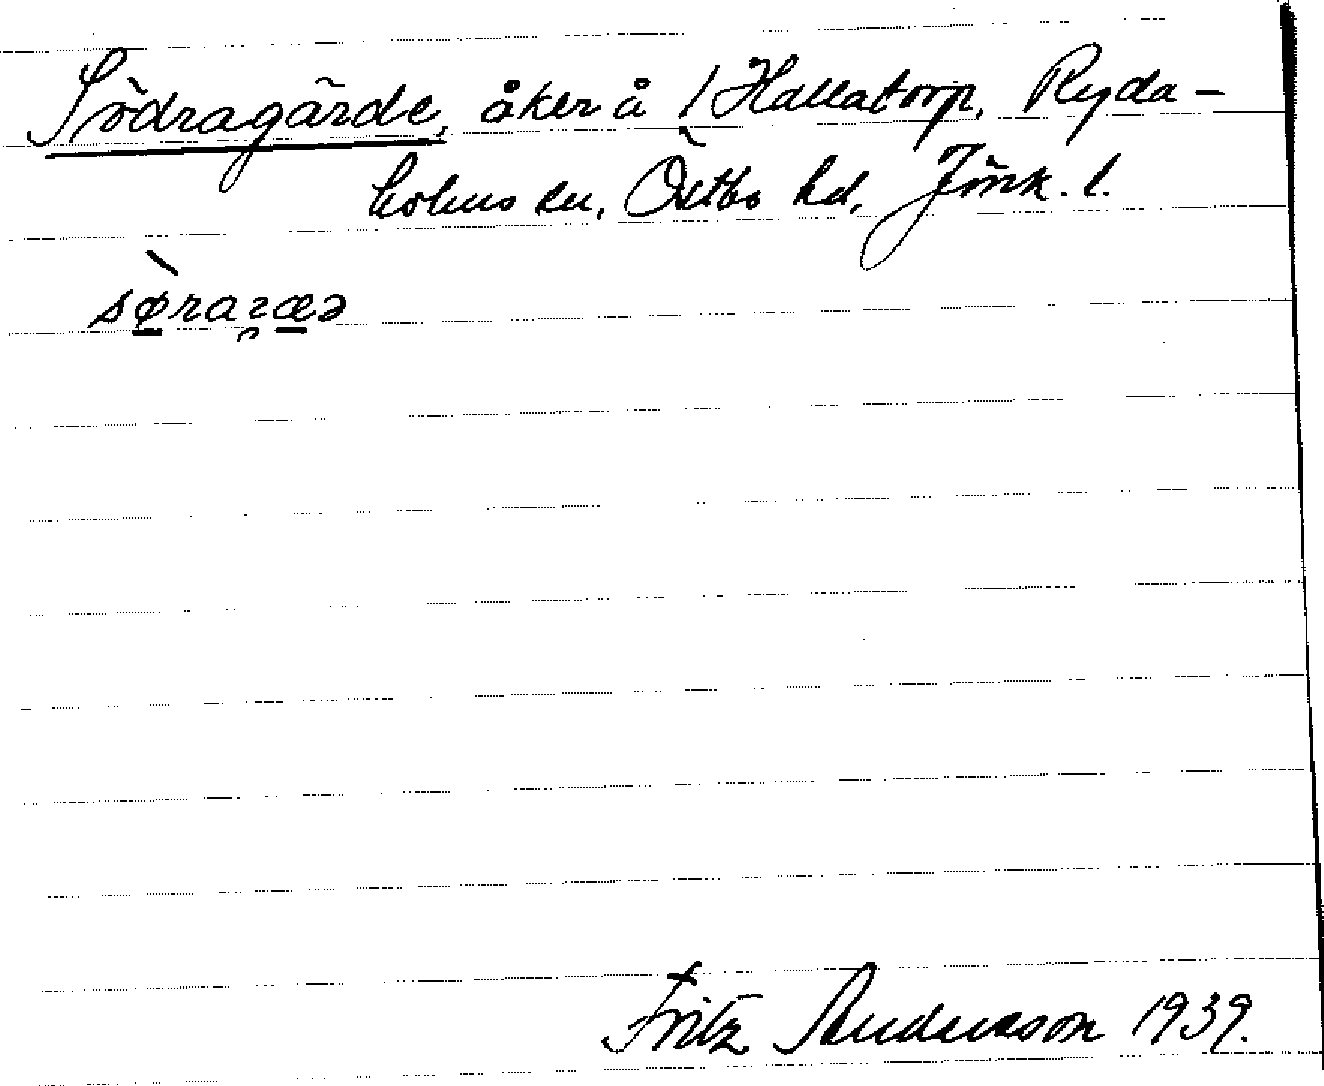 Södragärde, åker å /Hallatorp, Ryda-
holms sn, Östbo hd, Jönk. l.
sø̀raɀæə
Fritz Andersson 1939.